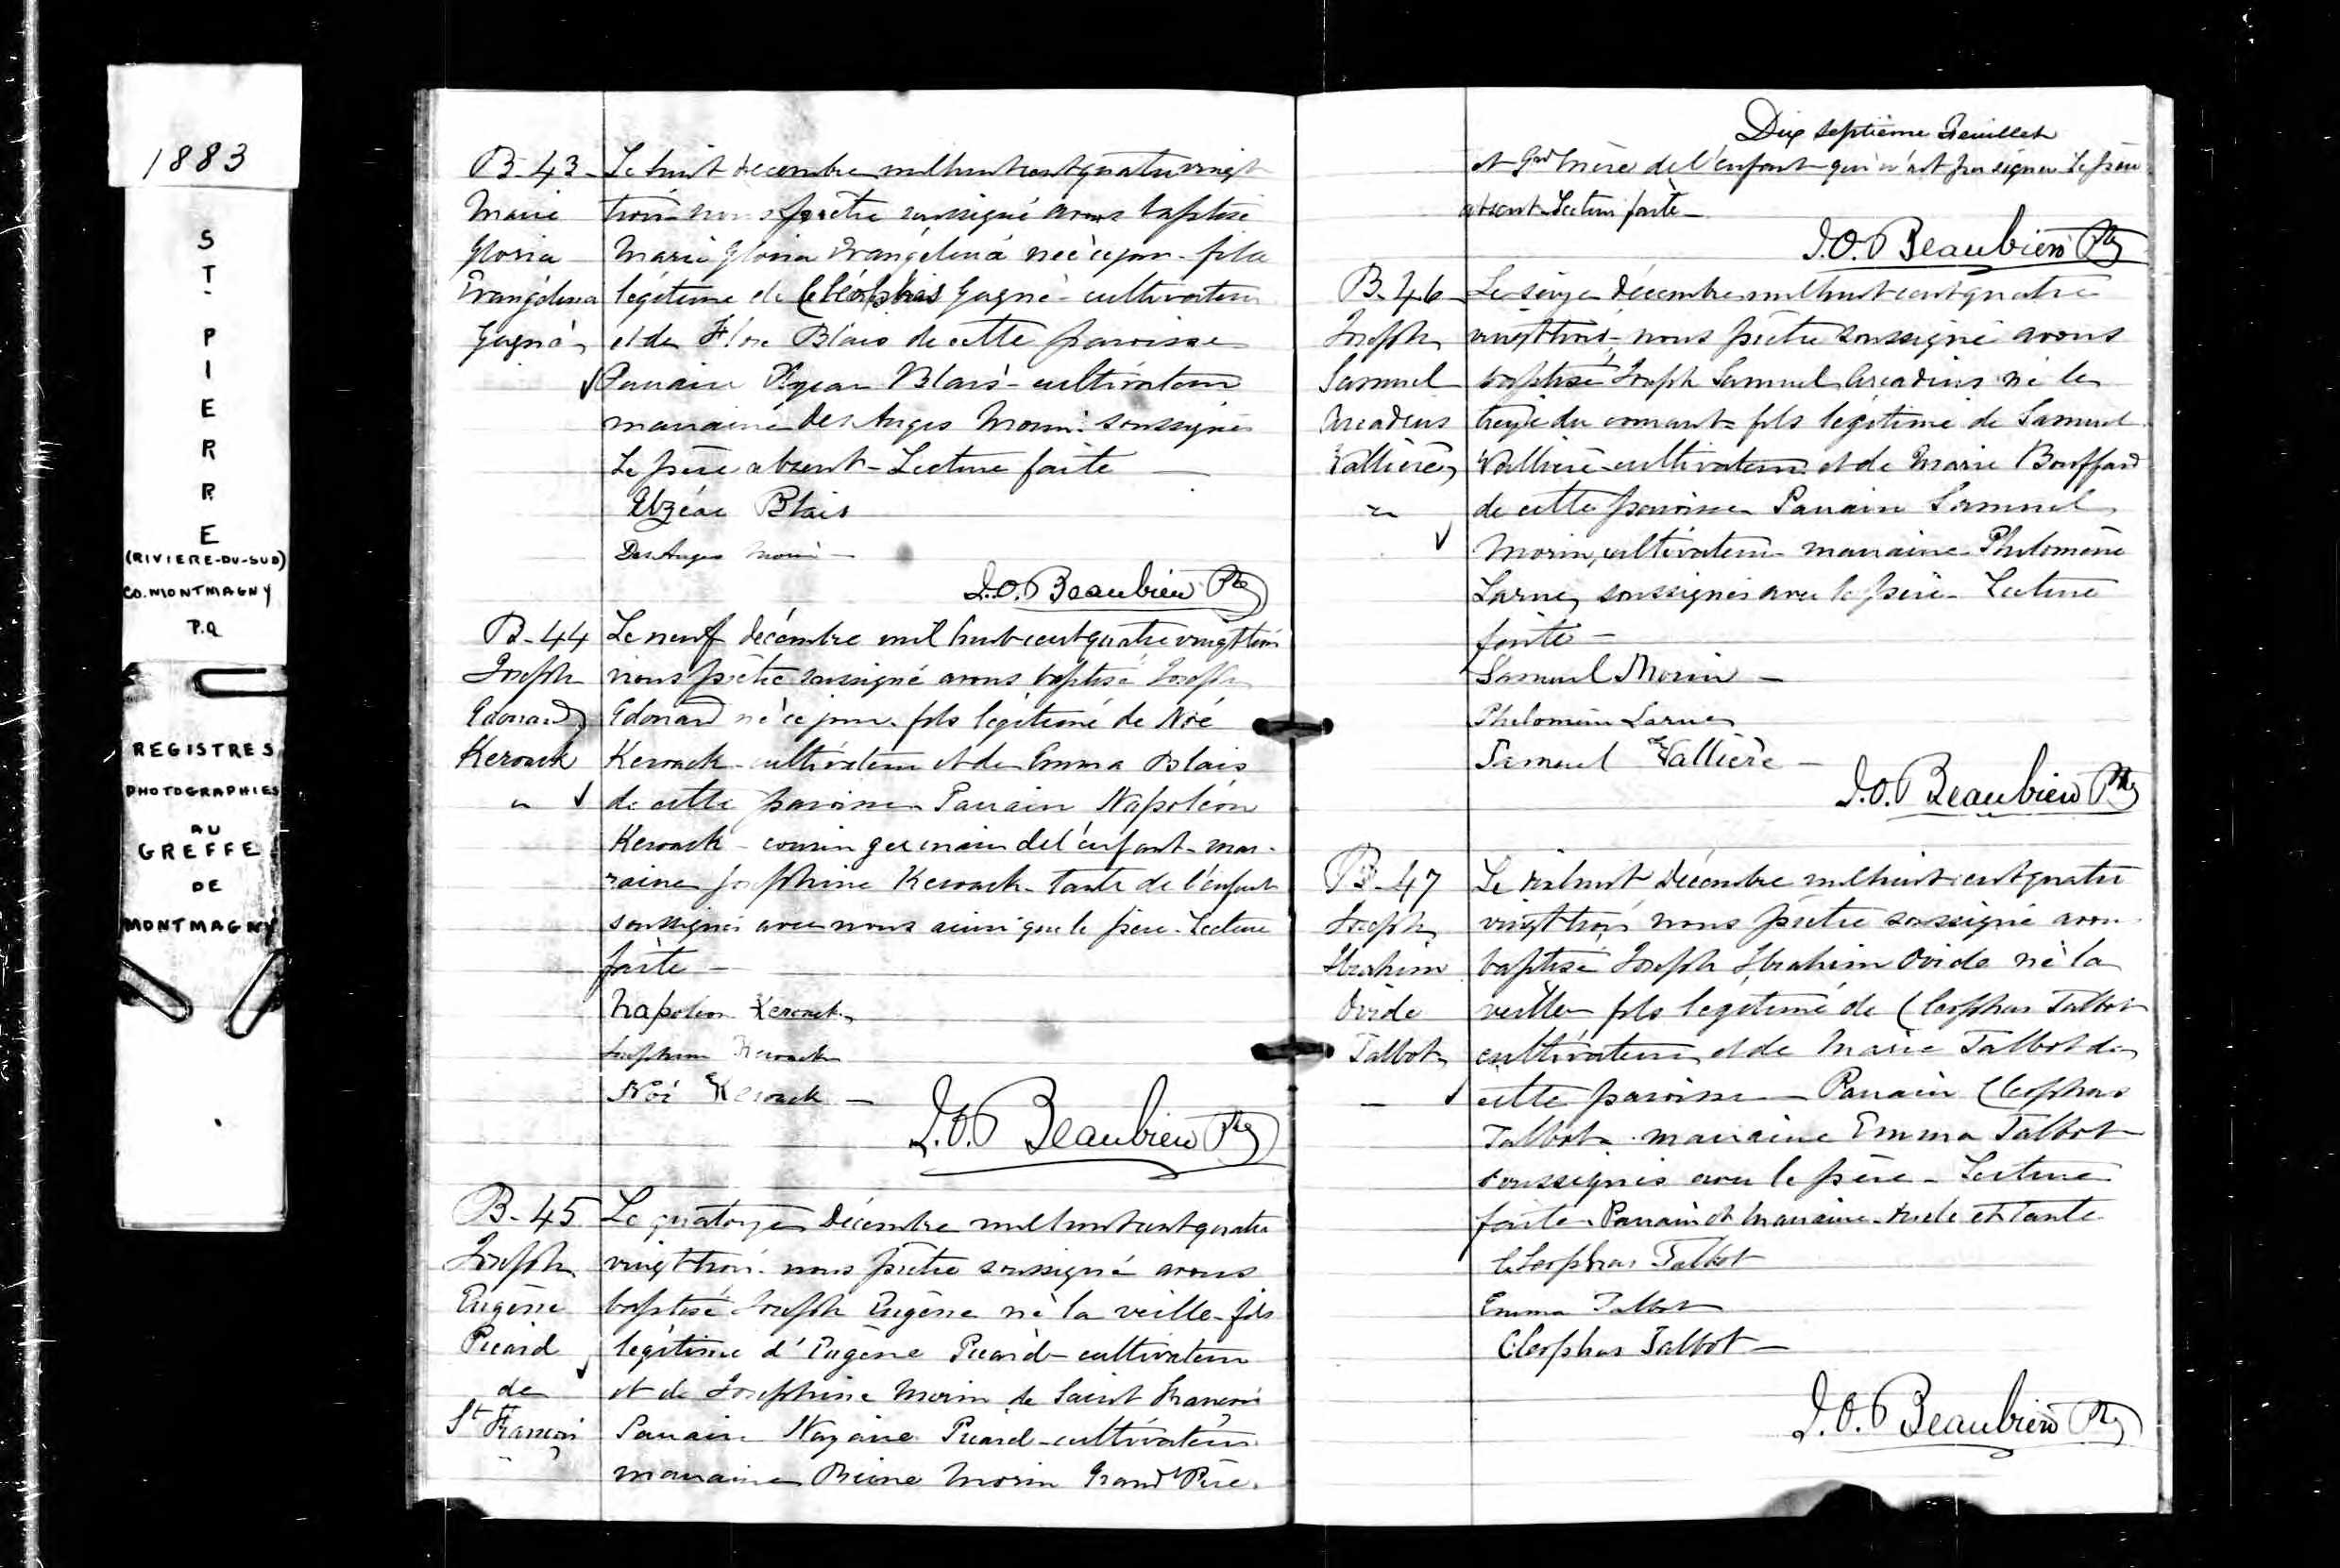 1883
S
T.
P
I
E
R
R
E
(RIVIERE-DU-SUD)
CO. MONTMAGNY
P.Q
REGISTRES
PHOTOGRAPHIES
AU
GREFFE
DE
MONTMAGNY
B-43
Marie
Gloria
Evangélina
Gagné
Le huit decembre mil huit cent quatre vingt
trois nous prêtre soussigné avons baptisé
Marie Gloria Evangélina née ce jour - fille
légitime de Cléophas Gagné - cultivateur
et de Flore Blais de cette paroisse
Parrain Elzéar Blais - cultivateur
marraine Des Anges Morin soussignés
Le père absent - Lecture faite -
Elzéar Blais
Des Anges Morin -
J.O. Beaubien Ptre
B-44
Joseph
Edouard
Kerouack
Le neuf décembre mil huit cent quatre vingt trois
nous prêtre soussigné avons baptisé Joseph
Edouard né ce jour - fils légitime de Noé
Kerouack - cultivateur et de Emma Blais
de cette paroisse Parrain Napoléon
Kerouack - cousin germain de l'enfant - mar-
raine Joséphine Kerouack - tante de l'enfant
soussignés avec nous ainsi que le père - Lecture
faite -
Napoléon Kerouack
Josephine Kerouack
Noé Kerouack -
J.O. Beaubien Ptre
B-45
Joseph
Eugène
Picard
de
St François
Le quatorze Décembre mil huit cent quatre
vingt trois nous prêtre soussigné avons
baptisé Joseph Eugène né la veille - fils
légitime d'Eugène Picard - cultivateur
et de Joséphine Morin de Saint François
Parrain Nazaire Picard - cultivateur
marraine Reine Morin Grand Père
Dix septième Feuillet
et Grd Mère de l'enfant qui n'ont pu signer Le père
absent - Lecture faite -
J.O. Beaubien Ptre
B-46
Joseph
Samuel
Arcadius
Vallière
Le seize Décembre mil huit cent quatre
vingt trois - nous prêtre soussigné avons
baptisé Joseph Samuel Arcadius né le
treize du courant - fils légitime de Samuel
Vallière - cultivateur et de Marie Bouffard
de cette paroisse Parrain Samuel
Morin, cultivateur marraine Philomène
Larue, soussignés avec le père - Lecture
faite -
Samuel Morin -
Philomène Larue
Samuel Vallière -
J.O. Beaubien Ptre
B-47
Joseph
Ibrahim
Ovide
Talbot
Le dix huit Décembre mil huit cent quatre
vingt trois nous prêtre soussigné avons
baptisé Joseph Ibrahim Ovide né la
veille fils légitime de Cleophas Talbot
cultivateur et de Marie Talbot de
cette paroisse - Parrain Cleophas
Talbot - marraine Emma Talbot
soussignés avec le père - Lecture
faite - Parrain et Marraine - oncle et tante
Cleophas Talbot
Emma Talbot
Cleophas Talbot -
J.O. Beaubien Ptre